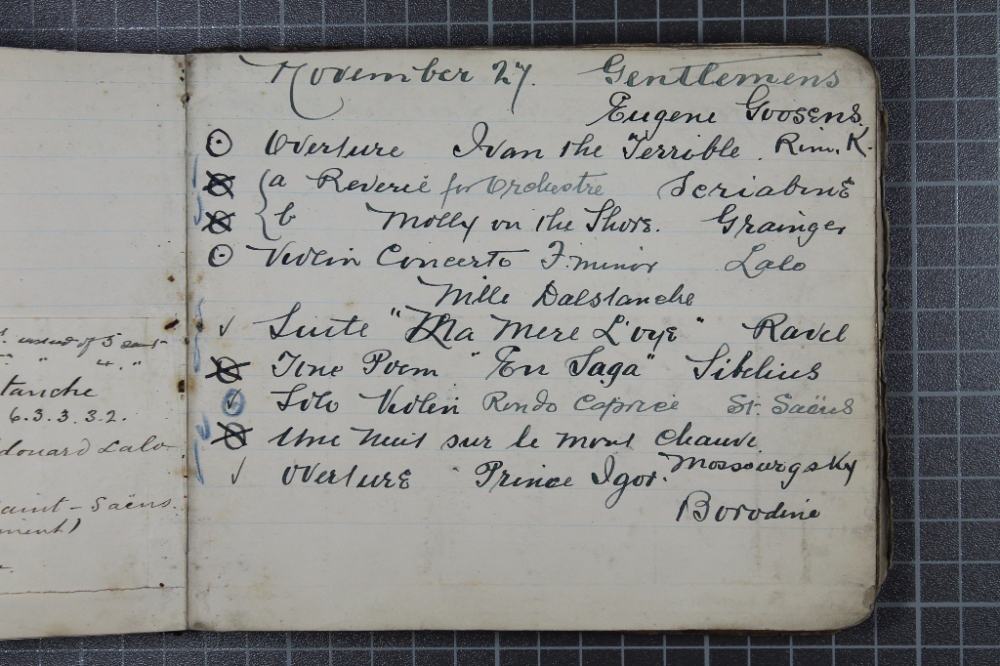 November 27. Gentlemens
Eugene Goosens.
Overture Ivan the Terrible. Rim. K.
a Reverie for Orchestre Scriabine
b Molly on the Shore. Grainger
Violin Concerto F. minor Lalo
Mlle Dalstanche
✓ Suite "Ma Mere L'oye" Ravel
Tone Poem "En Saga" Sibelius
✓ Solo Violin Rondo Caprice St. Saëns
Une Nuit sur le Mont Chauve
Moussourgsky
✓ Overture Prince Igor.
Borodine
instead of 5
" " 4. "
tanche
6.3.3.3.2.
douard Lalo
aint-Saëns.
ment)